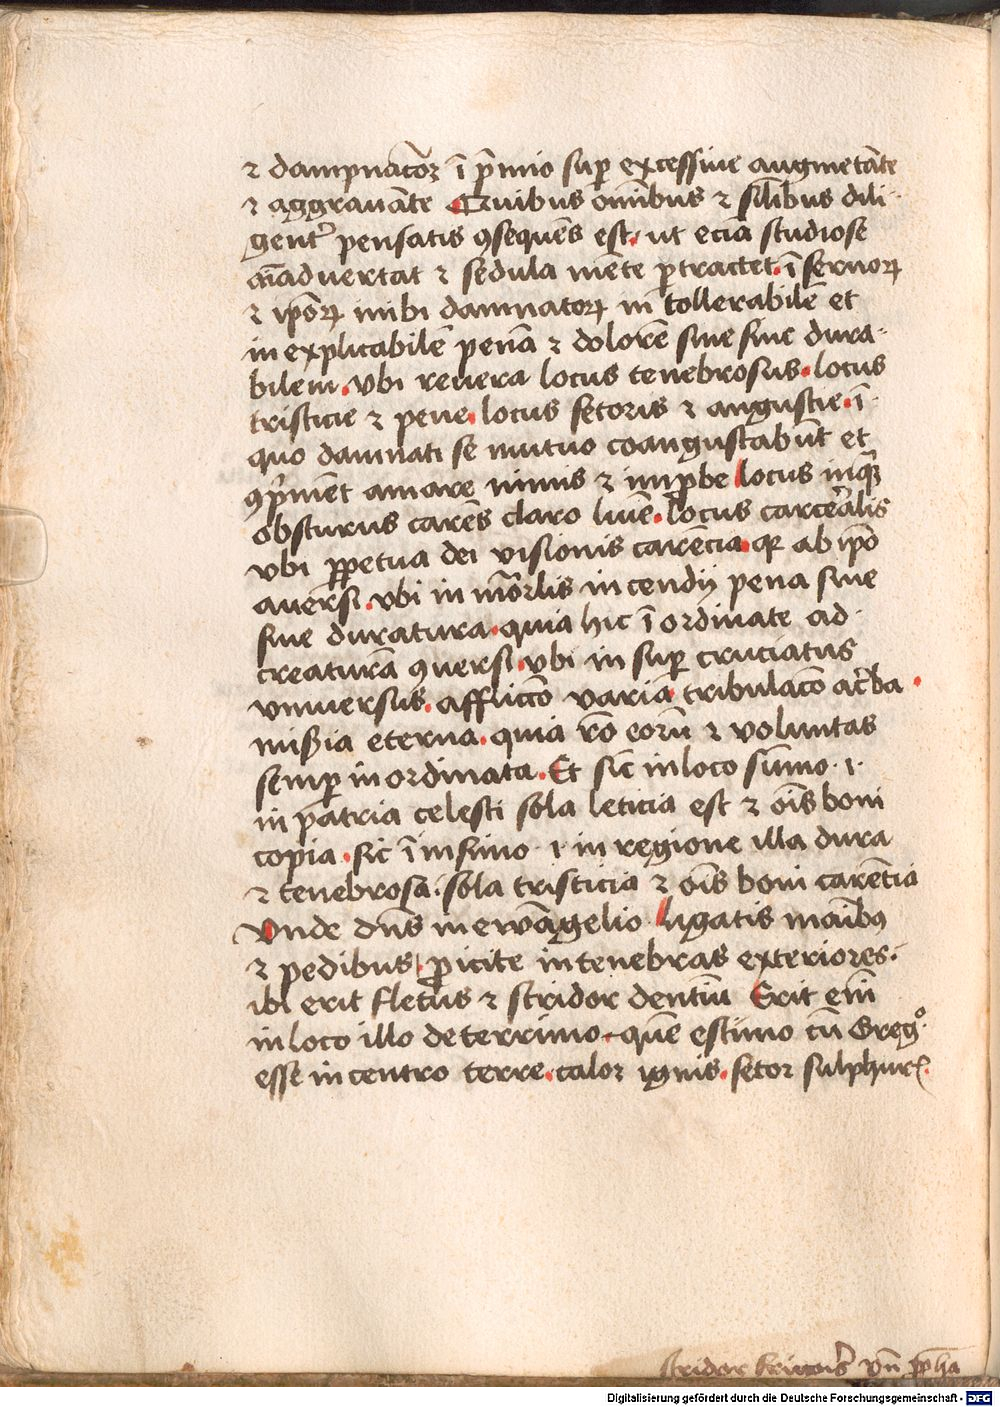 ⁊ dampnac̄oꝝ ī p̄mio suꝑ excessiue augmētāte
⁊ aggrauāte Quibus om̄ibus ⁊ sil̄ibus dili-
gent᷑ pensatis ꝯsequēs est ut eciā studiose
āīaduertat ⁊ sedula mēte ꝑtractet ī fernoꝝ
⁊ ip̄oꝝ inibi damnatoꝝ in tollerabilē et
inexplicabilē penā ⁊ dolorē sine fine dura-
bilem vbi reuera locus tenebrosus locus
tristicie ⁊ pene locus fetoris ⁊ angustie ī
quo damnati se mutuo coangustabūt et
ꝯp̄mēt amare nimis ⁊ imꝓbe locus inqᷓ
obscurus carēs claro lumīe locus carcēalis
vbi ꝑpetua dei visionis carēcia qꝛ ab ip̄o
auersi vbi in mōrlis incendij pena sine
fine duratura quia hic īordinate ad
creaturā ꝯuersi vbi in suꝑ cruciatus
vniuersus afflicc̄o varia tribulac̄o ac̄ba
mis̄ia eterna quia rō eorū ⁊ voluntas
semꝑ inordinata Et sic̄ in loco sūmo .i.
in patria celesti sola leticia est ⁊ oīs boni
copia sic ī infimo .i. in regione illa dura
⁊ tenebrosa sola tristicia ⁊ oīs boni carētia
Vnde dn̄s in ewāgelio ligatis maībus
⁊ pedibus ꝓicite in tenebras exteriores
ibi erit fletus ⁊ stridor dentiū Erit em̄
in loco illo deterrimo quē estimo cū Gregͦ
esse in centro terre calor ignis fetor sulphur̄
stridor